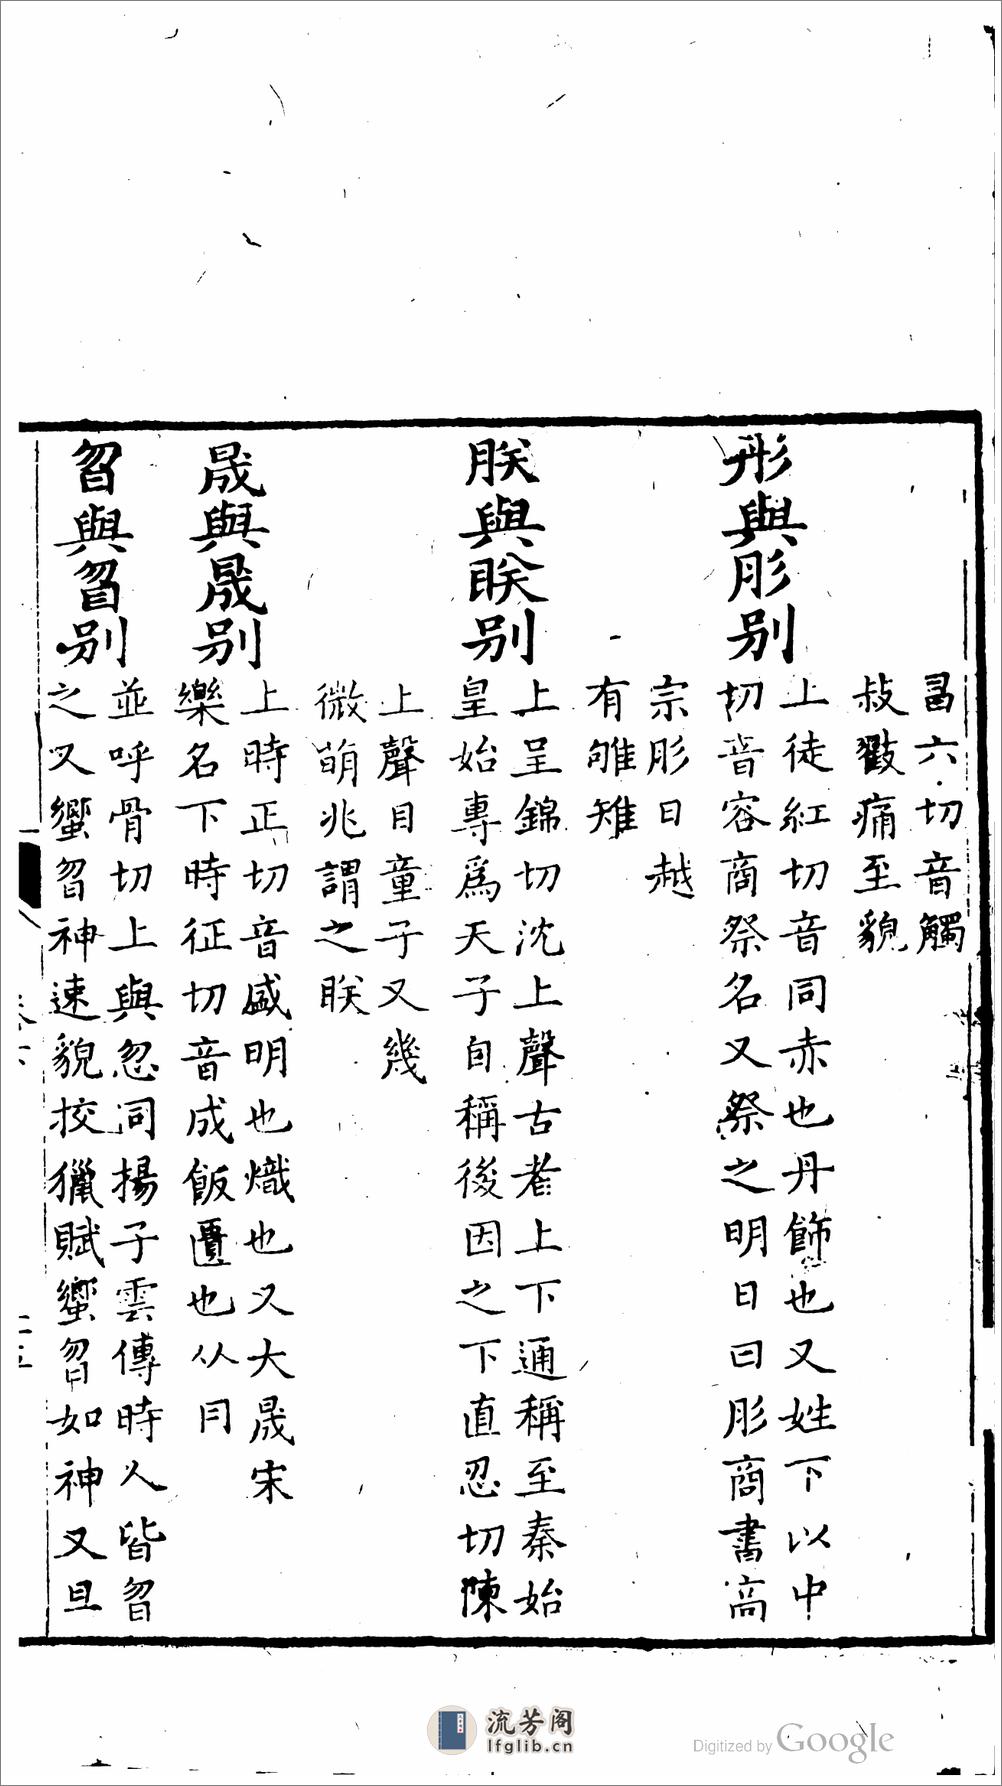 昌六切音觸
敊㱽痛至貌
彤與肜别
上徒紅切音同赤也丹飾也又姓下以中
切音容商祭名又祭之明日曰肜商書高
宗肜日越
有雊雉
朕與眹别
上呈錦切沈上聲古者上下通稱至秦始
皇始專爲天子自稱後因之下直忍切陳
上聲目童子又幾
微萌兆謂之眹
晟與晟别
上時正切音盛明也熾也又大晟宋
樂名下時征切音成飯匱也从冃
曶與㫚别
並呼骨切上與忽同揚子雲傳時人皆曶
之又蠁曶神速貌挍獵賦蠁曶如神又旦
流芳阁
lfglib.cn
Digitized by Google